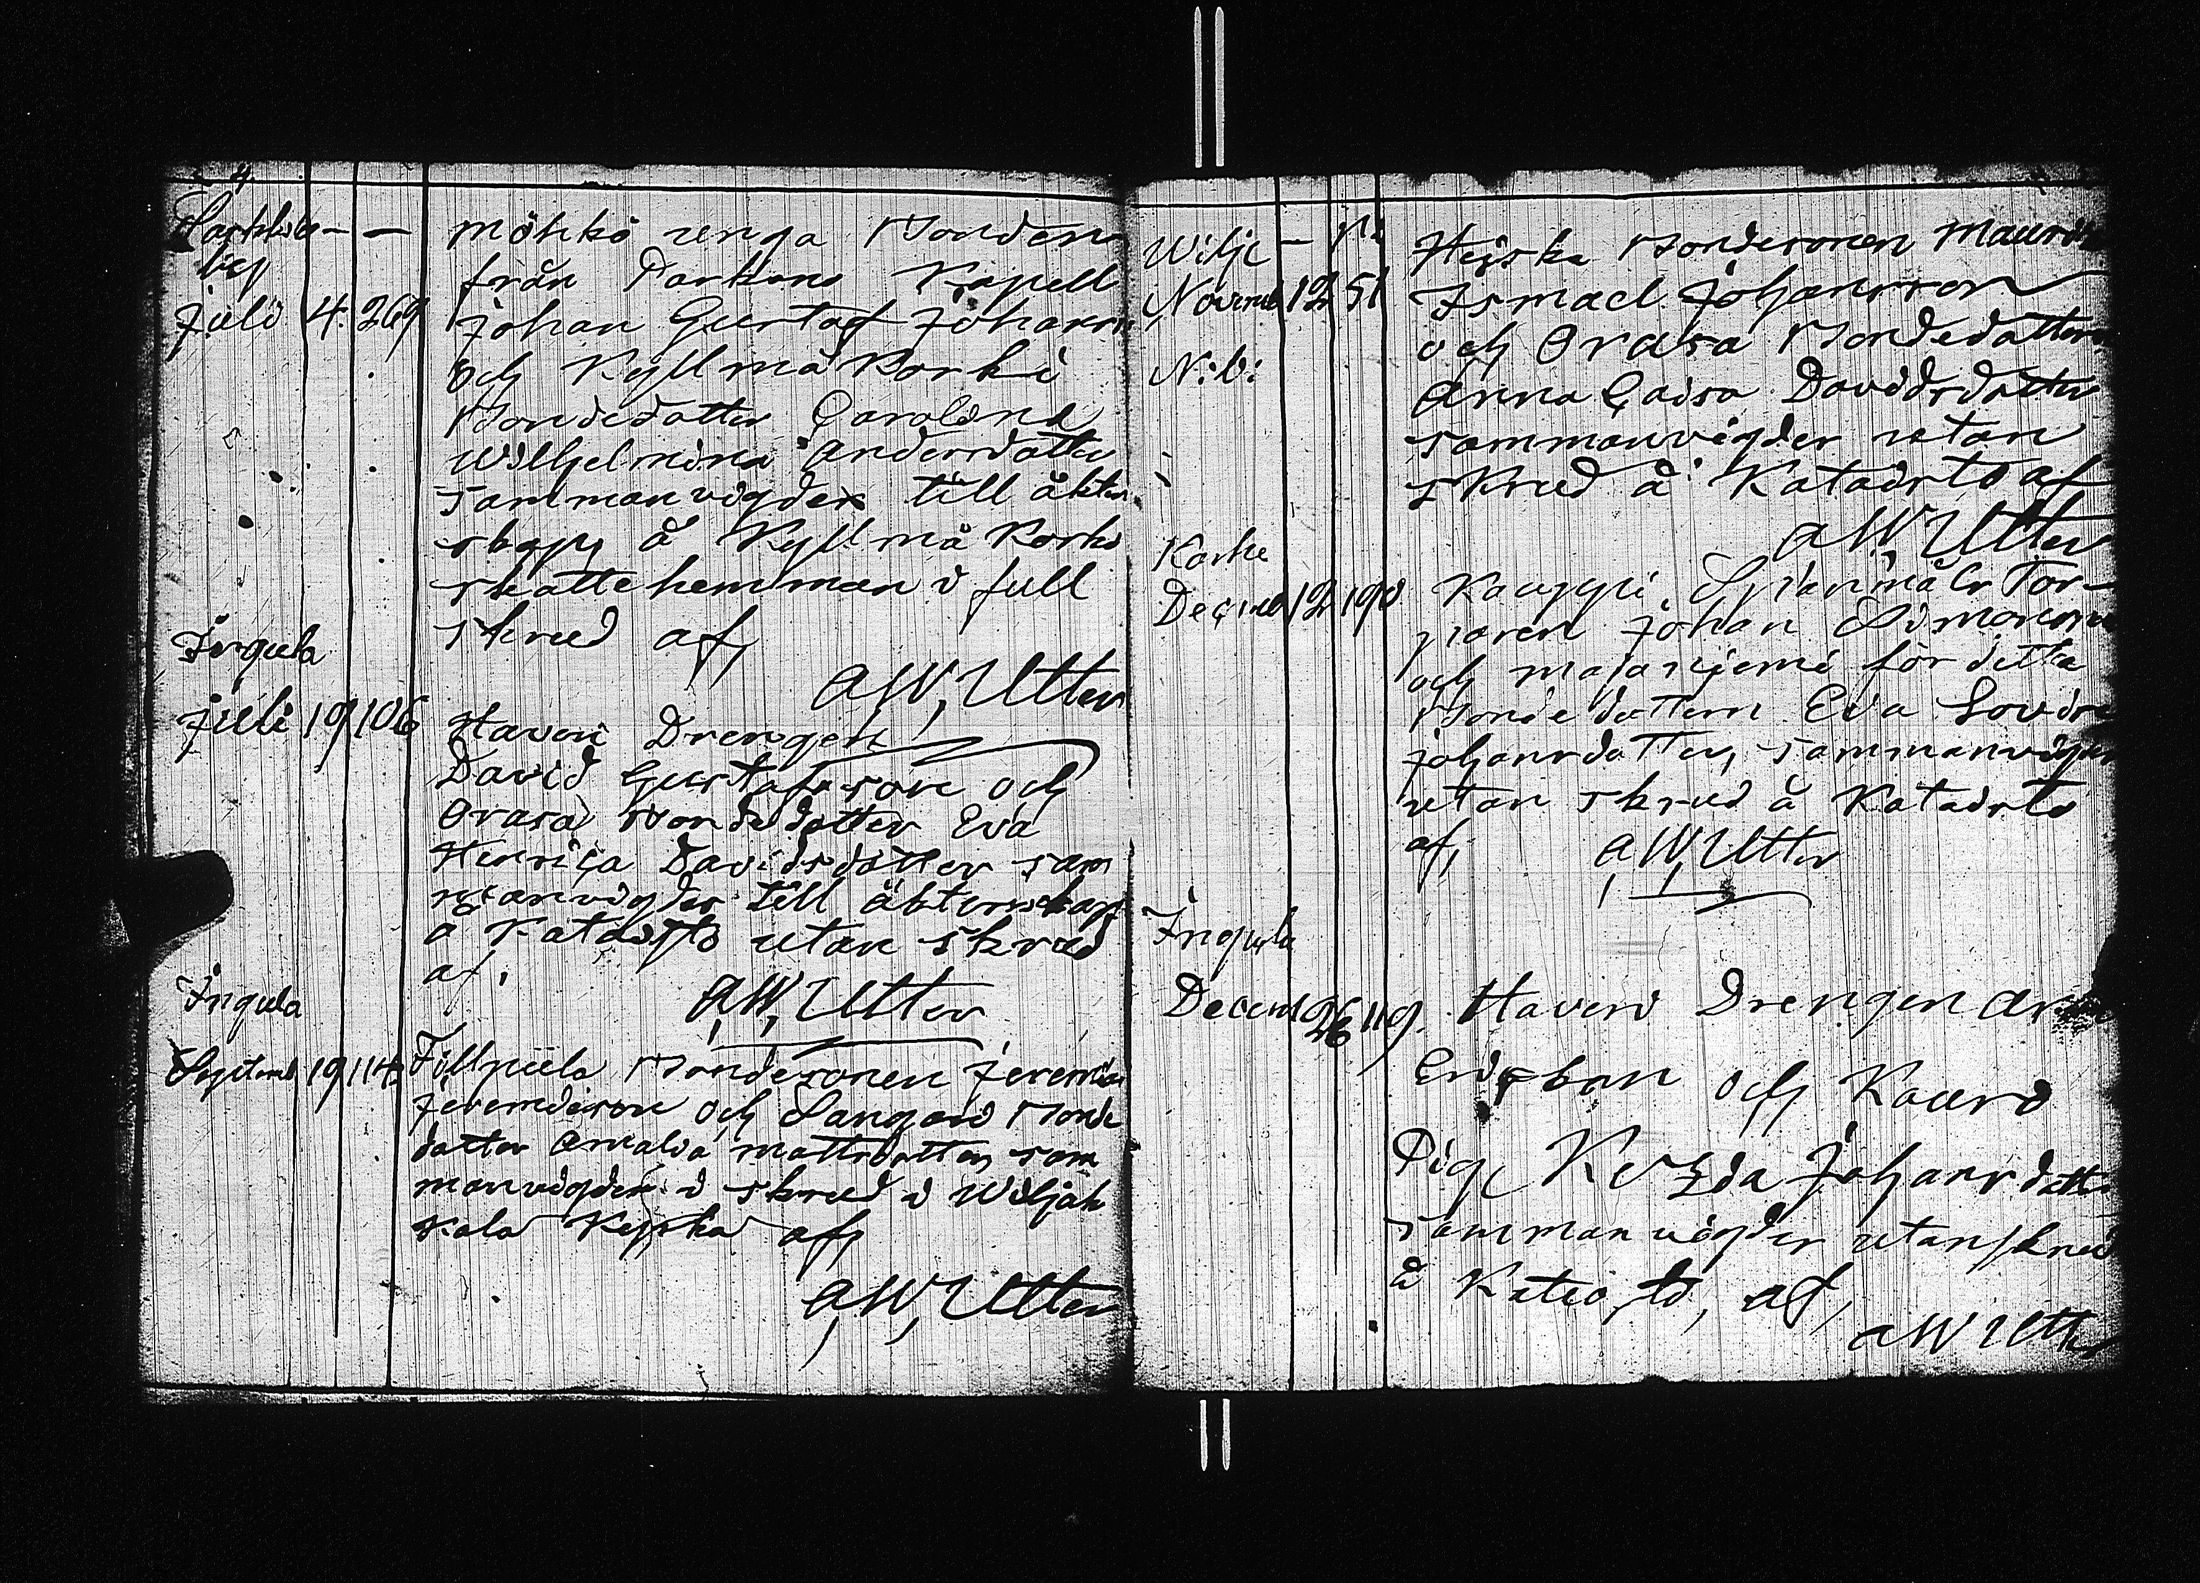 4
Sarkkila - -
by
Juli 4. 269
Möhkö unga Bonden
från Parkano Kapell
Johan Gustaf Johanss
och Kyllmä Korki
Bondedotter Carolina
Wilhelmina Andersdotter
sammanvigder till äkten
skap å Kyllmä Korki
skattehemman i full
skrud af,
A, W, Utter
Ingula
Juli 19 106
Haveri Drengen
David Gustafsson och
Orasa Bondedotter Eva
Henrica Davidsdotter sam
manvigder till äktenskap
å Kataisto utan skrud
af,
A, W, Utter
Ingula
Septemb 19 114
Fillpula Bondesonen Jeremias
Jeremiasson och Bonde
dotter Amalia Mattsdotter sam
manvigder i skrud i Wiljak
kala Kyrka af,
A, W, Utter
Wilje - N:
Novemb 12 51
N:b:
Heiska Bondesonen Maurits
Ismael Johansson
och Orasa Bondedotter
Anna Caisa Davidsdotter
sammanvigder utan
skrud å Kataisto af
A W, Utter
Karhe
Decemb 12 190
Kauppi Tor-
paren Johan Simonsson
och Majaniemi för detta
Bondedottern Eva Lovisa
Johansdotter, sammanvigder
utan skrud å Kataisto
af, A, W, Utter
Ingula
Decem 26 119.
Haveri Drengen
Ericsson och Kauro
Pig Johansdotter
sammanvigder utan skrud
å Kataisto, af,
A W Utter